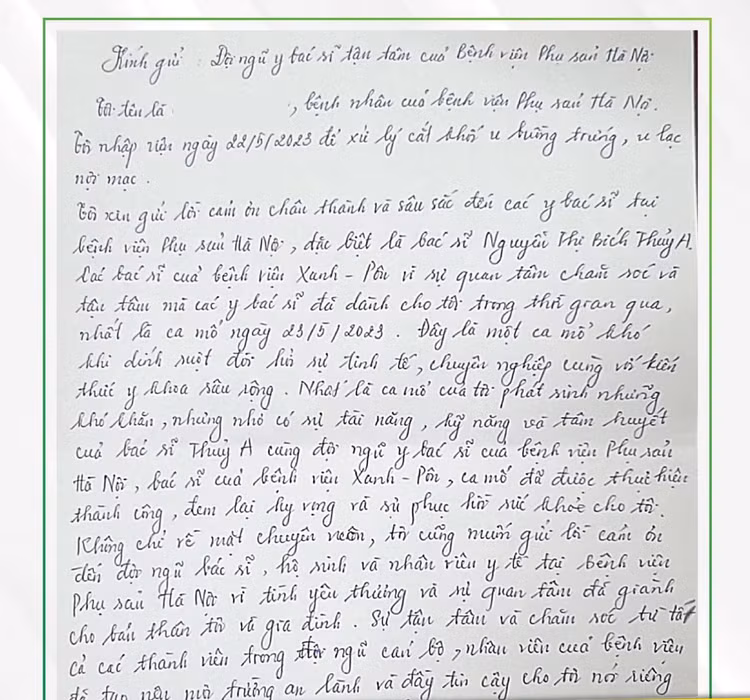 Kính gửi: Đội ngũ y bác sĩ tận tâm của Bệnh viện Phụ sản Hà Nội.
Tôi tên là , bệnh nhân của bệnh viện Phụ sản Hà Nội.
Tôi nhập viện ngày 22/5/2023 để xử lý cắt khối u buồng trứng, u lạc
nội mạc.
Tôi xin gửi lời cảm ơn chân thành và sâu sắc đến các y bác sĩ tại
bệnh viện Phụ sản Hà Nội, đặc biệt là bác sĩ Nguyễn Thị Bích Thủy A.
Các bác sĩ của bệnh viện Xanh - Pôn vì sự quan tâm chăm sóc và
tận tâm mà các y bác sĩ đã dành cho tôi trong thời gian qua,
nhất là ca mổ ngày 23/5/2023. Đây là một ca mổ khó
khi dính ruột đòi hỏi sự tinh tế, chuyên nghiệp cùng với kiến
thức y khoa sâu rộng. Nhất là ca mổ của tôi phát sinh những
khó khăn, nhưng nhờ có sự tài năng, kỹ năng và tâm huyết
của bác sĩ Thủy A cùng đội ngũ y bác sĩ của bệnh viện Phụ sản
Hà Nội, bác sĩ của bệnh viện Xanh - Pôn, ca mổ đã được thực hiện
thành công, đem lại hy vọng và sự phục hồi sức khỏe cho tôi.
Không chỉ về mặt chuyên môn, tôi cũng muốn gửi lời cảm ơn
đến đội ngũ bác sĩ, hộ sinh và nhân viên y tế tại bệnh viện
Phụ sản Hà Nội vì tình yêu thương và sự quan tâm đã giành
cho bản thân tôi và gia đình. Sự tận tâm và chăm sóc từ tất
cả các thành viên trong đội ngũ cán bộ, nhân viên của bệnh viện
đã tạo nên môi trường an lành và đầy tin cậy cho tôi nói riêng